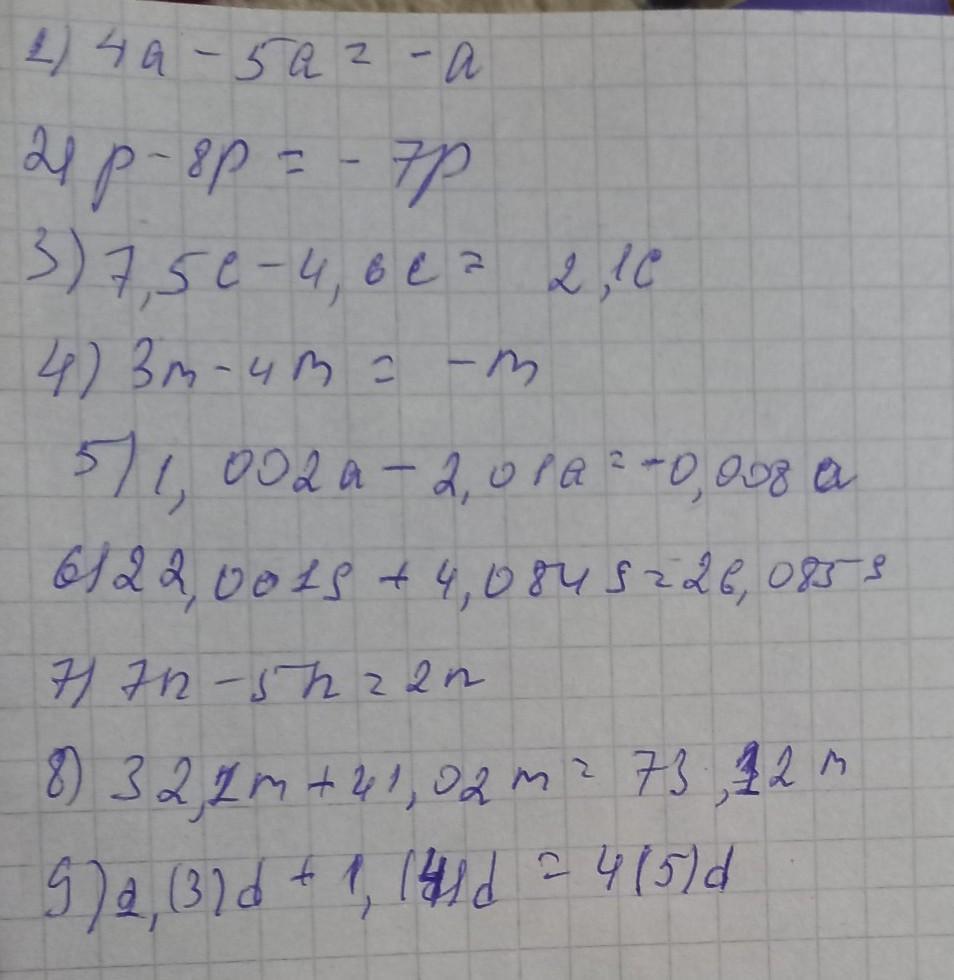 1) 4a - 5a = -a
2) p - 8p = - 7p
3) 7,5c - 4,6c = 2,1c
4) 3m - 4m = - m
5) 1,002a - 2,01a = -0,008a
6) 22,001s + 4,084s = 26,085s
7) 7n - 5n = 2n
8) 32,1m + 41,02m = 73,12m
9) 2,(3)d + 1,(4)d = 4(5)d